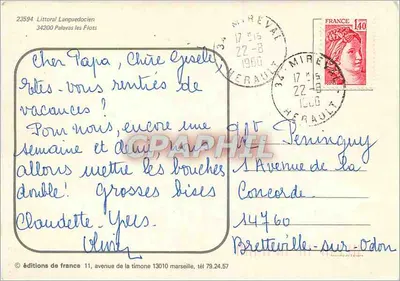 23594 Littoral Languedocien
34200 Palavas les Flots
Cher Papa, Chère Gisèle
Etes-vous rentrés de
vacances?
Pour nous, encore une
semaine et demie,
allons mettre les bouches
double! Grosses bises
Claudette - Yves
Olivier
34 MIREVAL
17H15
22-8
1980
HERAULT
34 MIREVAL
17H15
22-8
1980
HERAULT
FRANCE
1,40
Peninguy
1 Avenue de la
Concorde
14760
Bretteville-sur-Odon
© éditions de france 11, avenue de la timone 13010 marseille, tél 79.24.57
GRAPHIL